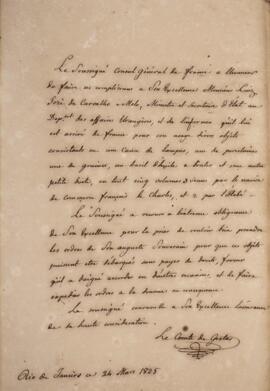 Le Soussigné Consul Général de France a l'honneur
de faire ses complimens a Son Excellence Monsieur Luiz
José de Carvalho e Mello, Ministre et Secrétaire d'Etat au
Dept. des affaires Etrangères, et de l'informer qu'il lui
est arrivé de france pour son usage divers objets
consistant en une Caisse de lampes, une de porcelaine
une de graines, un baril d'huile et une autre
petite boite, en tout cinq colis venus par le navire
de commerce français le Charles, et
Le Soussigné a recours a
de Son Excellence pour la prier de vouloir bien prendre
les ordres de Son auguste Souverain pour que ces objets
puissent etre débarqués sans payer de droits, faveur
qu'il a daigné accorder en d'autres occasions, et de faire
expédier les ordres a la douane en conséquence.
Le Soussigné renouvelle a Son Excellence l'assurance
de sa haute considération.
Le Comte de Gestas
Rio de Janeiro ce 24 Mars 1825